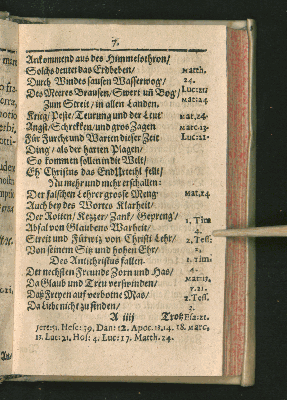 7.
Ankommend aus des Himmelsthron/
Solchs deutet das Erdbeben/ Matth.
Durch Windes sausen Wasserwog/ 24.
Des Meeres Brausen/ Swert uñ Bog/ Luc: 21.
Zum Streit/ in allen Landen. Mat: 24
Krieg/ Peste/ Teurung und der Leut Mat, 24.
Angst/ Schrekken/ und gros Zagen Marc. 13.
Für Furcht und Warten dieser Zeit Luc: 21.
Ding/ als der harten Plagen/
So kommen sollen in die Welt/
Eh Christus das EndUrtheil fellt/
Nu mehr und mehr erschallen:
Der falschen Lehrer grosse Meng Mat, 24
Auch bey des Wortes Klarheit/
Der Rotten/ Kezzer/ Zank/ Gepreng/ 1. Tim
Abfal von Glaubens Warheit/ 4.
Streit und Fürwiz von Christi Lehr/ 2. Tess.
Von seinem Siz und hohen Ehr/ 2.
Des Antichristus fallen. 1. Tim:
Der nechsten Freunde Zorn und Has/ 4.
Da Glaub und Treu verswinden/ Mat: 13.
Das Freyen auf verbotne Mas/ v. 21.
Da Liebe nicht zu finden/ 2. Tess.
A iiij Troz Esa: 21.
Jere: 51. Hese: 39. Dan: 12. Apoc. 13. 14. 18. Marc.
13. Luc: 21. Hos: 4. Luc: 17. Matth. 24.